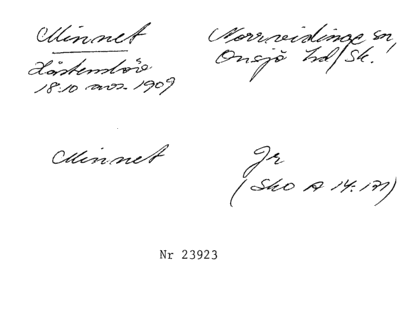 Minnet Norrvidinge sn,
Onsjö hd/Sk.
18.10 1909
Minnet Jr
(SkO A 14:171)
Nr 23923